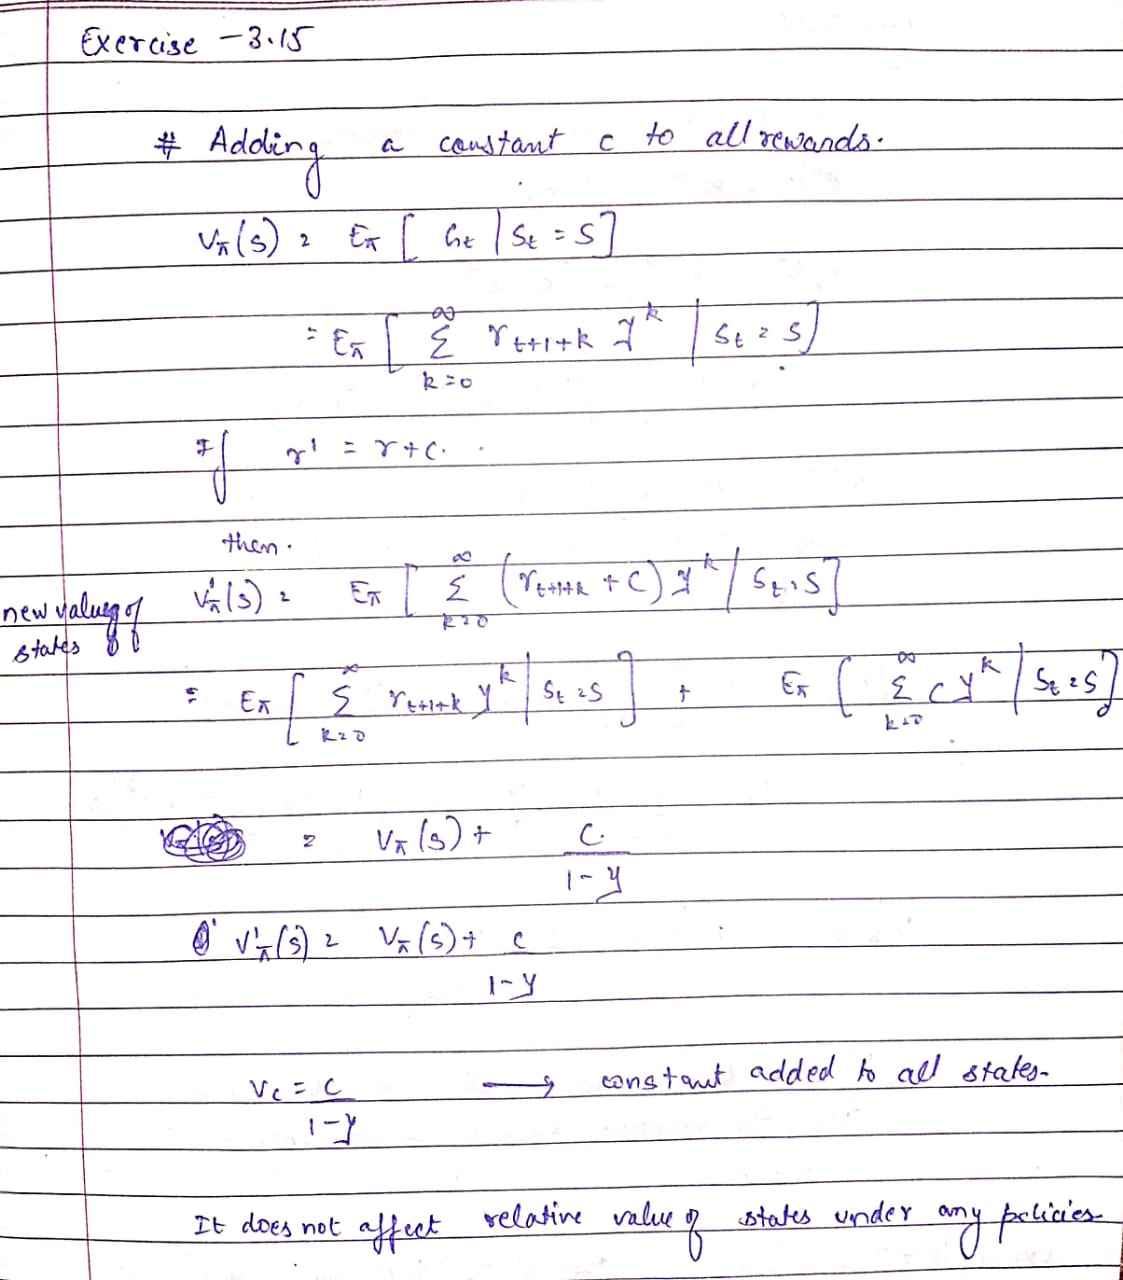 Exercise - 3.15
# Adding a constant c to all rewards.
Vπ(s) = Eπ [ Gt | St = S ]
= Eπ [ Σ_{k=0}^{∞} r_{t+1+k} γ^k | St = S ]
If r' = r + c.
then.
new values of states V'π(s) = Eπ [ Σ_{k=0}^{∞} (r_{t+1+k} + c) γ^k | St = S ]
= Eπ [ Σ_{k=0}^{∞} r_{t+1+k} γ^k | St = S ] + Eπ [ Σ_{k=0}^{∞} c γ^k | St = S ]
= Vπ(s) + c / (1-γ)
V'π(s) = Vπ(s) + c / (1-γ)
Vc = c / (1-γ) → constant added to all states.
It does not affect relative value of states under any policies